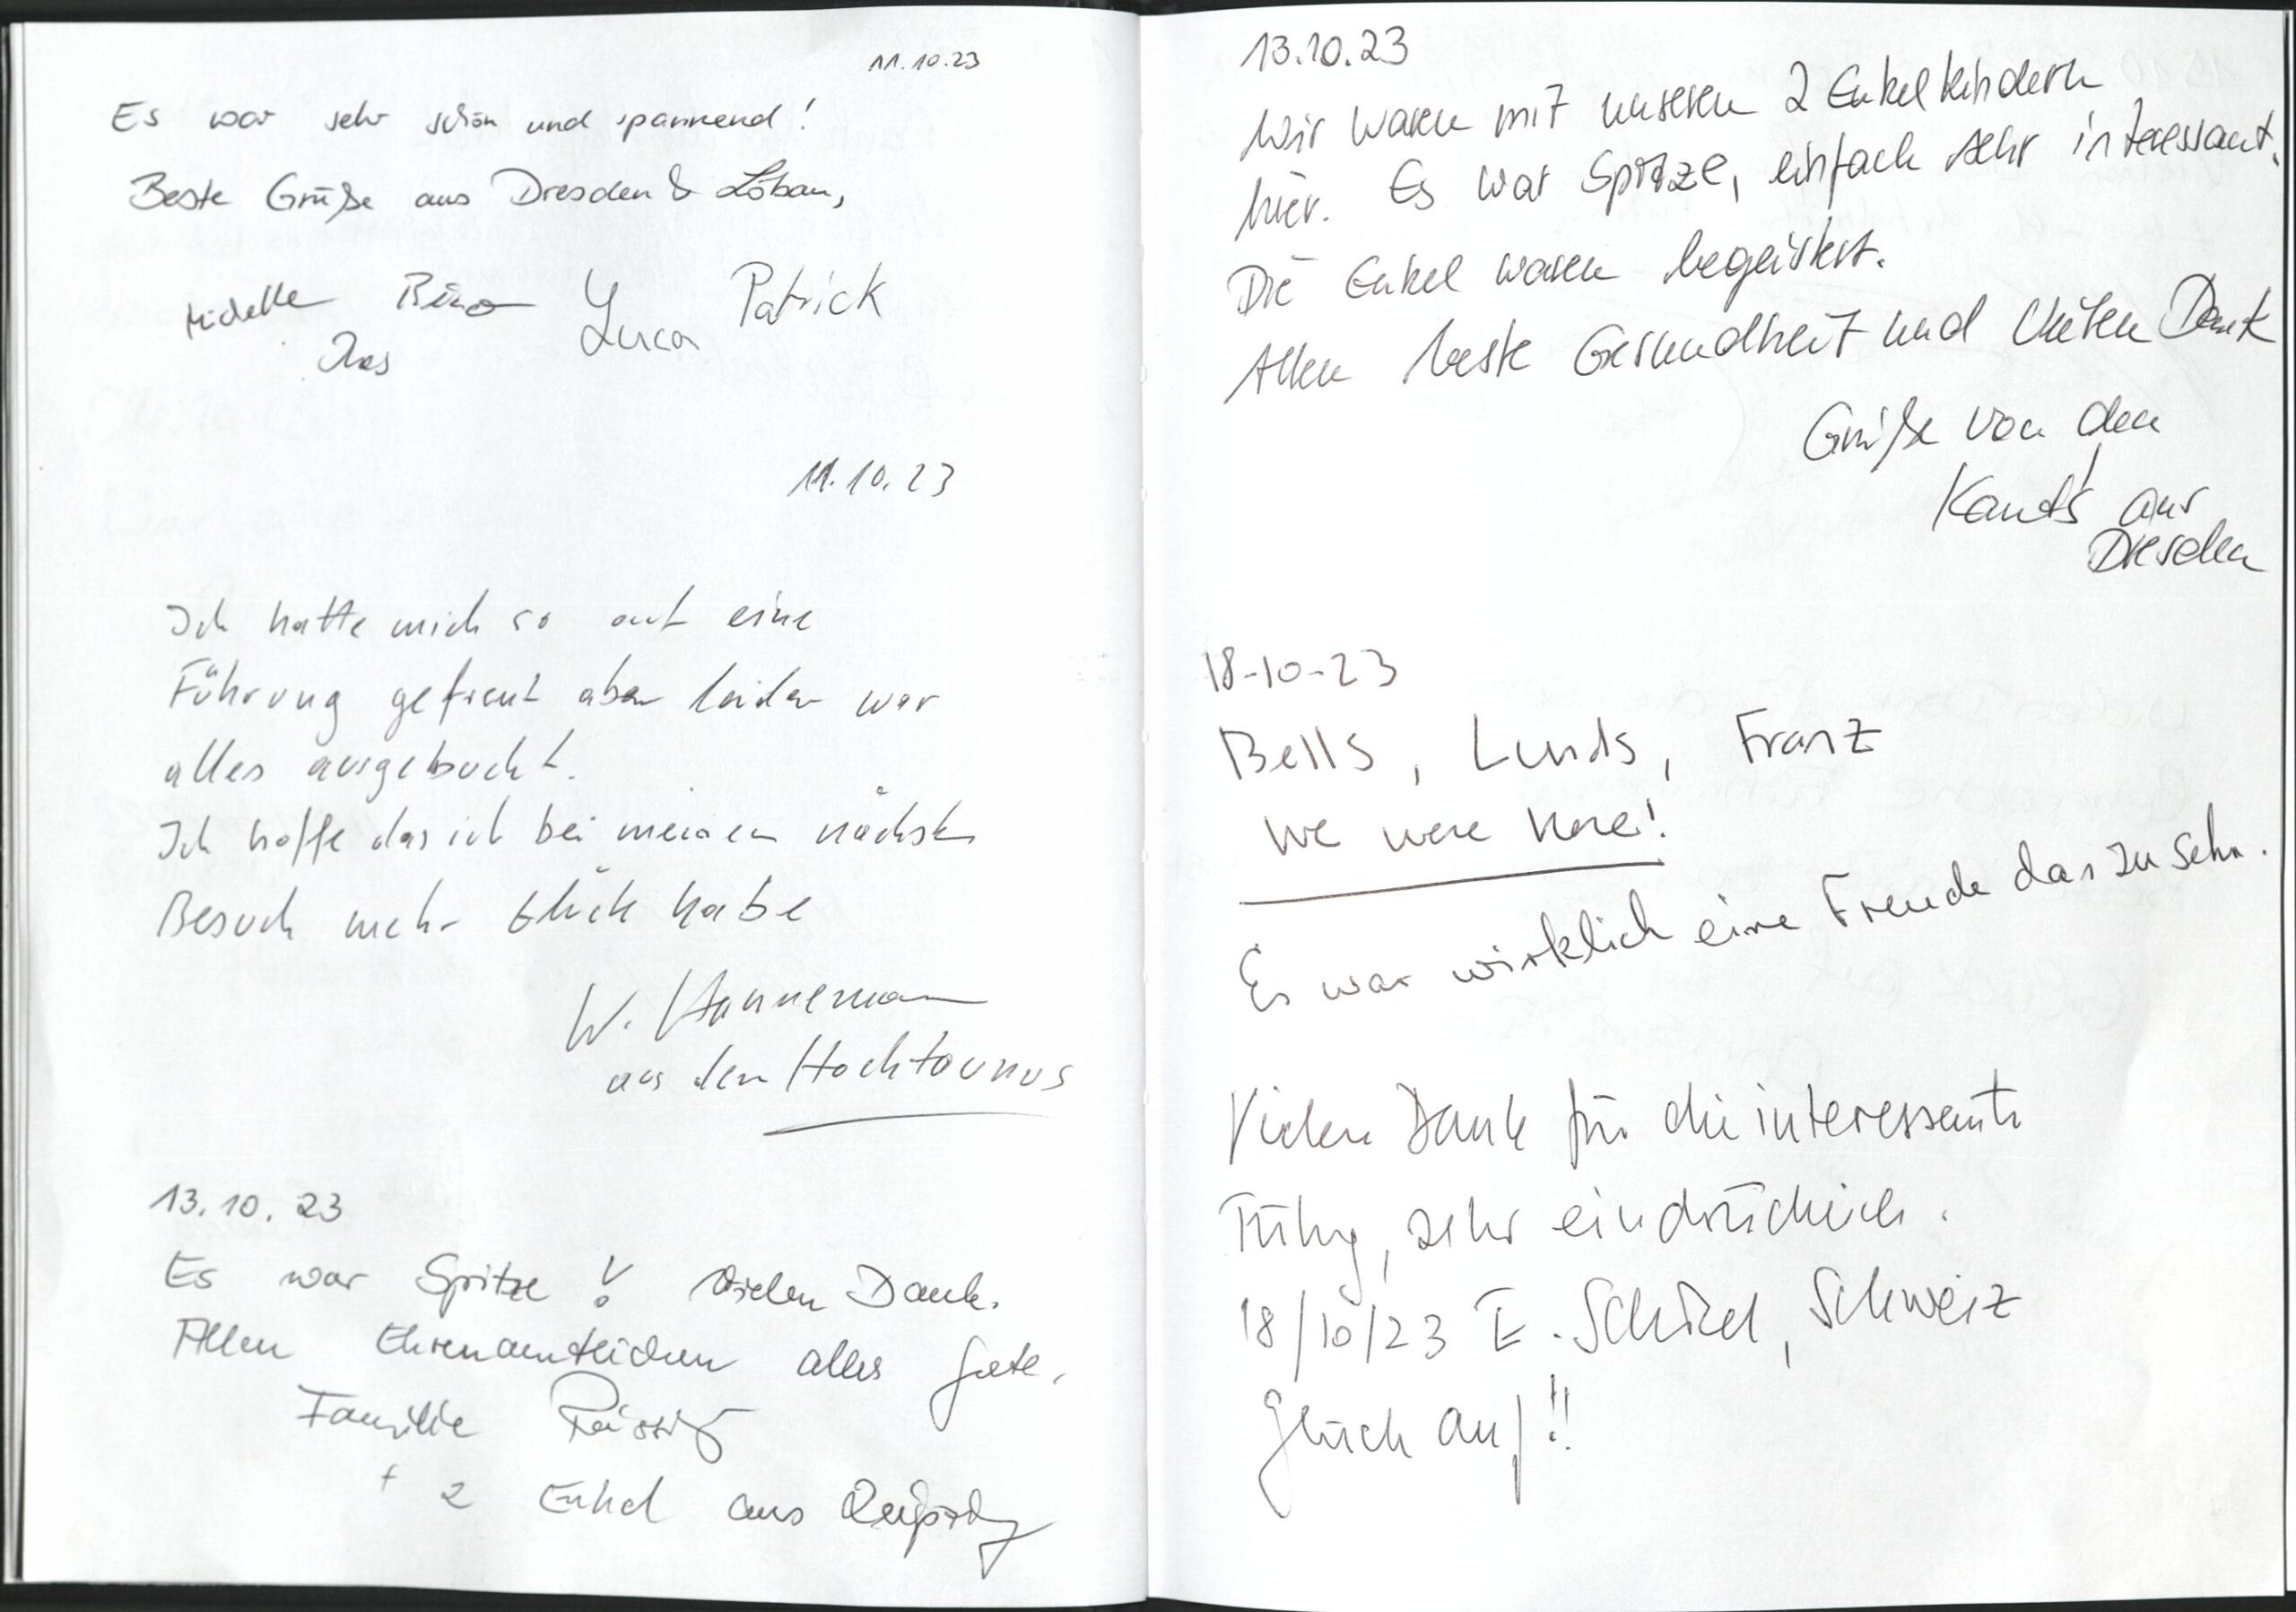 11.10.23
Es war sehr schön und spannend!
Beste Grüße aus Dresden & Löbau,
Michelle Luca Patrick
Ines
11.10.23
Ich hatte mich so auf eine
Führung gefreut aber leider war
alles ausgebucht.
Ich hoffe das ich bei meinem nächsten
Besuch mehr Glück habe
W. Hannemann
aus dem Hochtaunus
13.10.23
Es war Spitze! Vielen Dank.
Allen Ehrenamtlichen alles Gute,
Familie
+ 2 Enkel aus
13.10.23
Wir waren mit unseren 2 Enkelkindern
hier. Es war Spitze, einfach sehr interessant.
Die Enkel waren begeistert.
Allen beste Gesundheit und vielen Dank
Grüße von den
Kandt's aus
Dresden
18-10-23
Bells, Lunds, Franz
We were here!
Es war wirklich eine Freude das zu sehn.
Vielen Dank für die interessante
Führg, sehr eindrücklich.
18/10/23 E. Schweiz
Glück auf!!